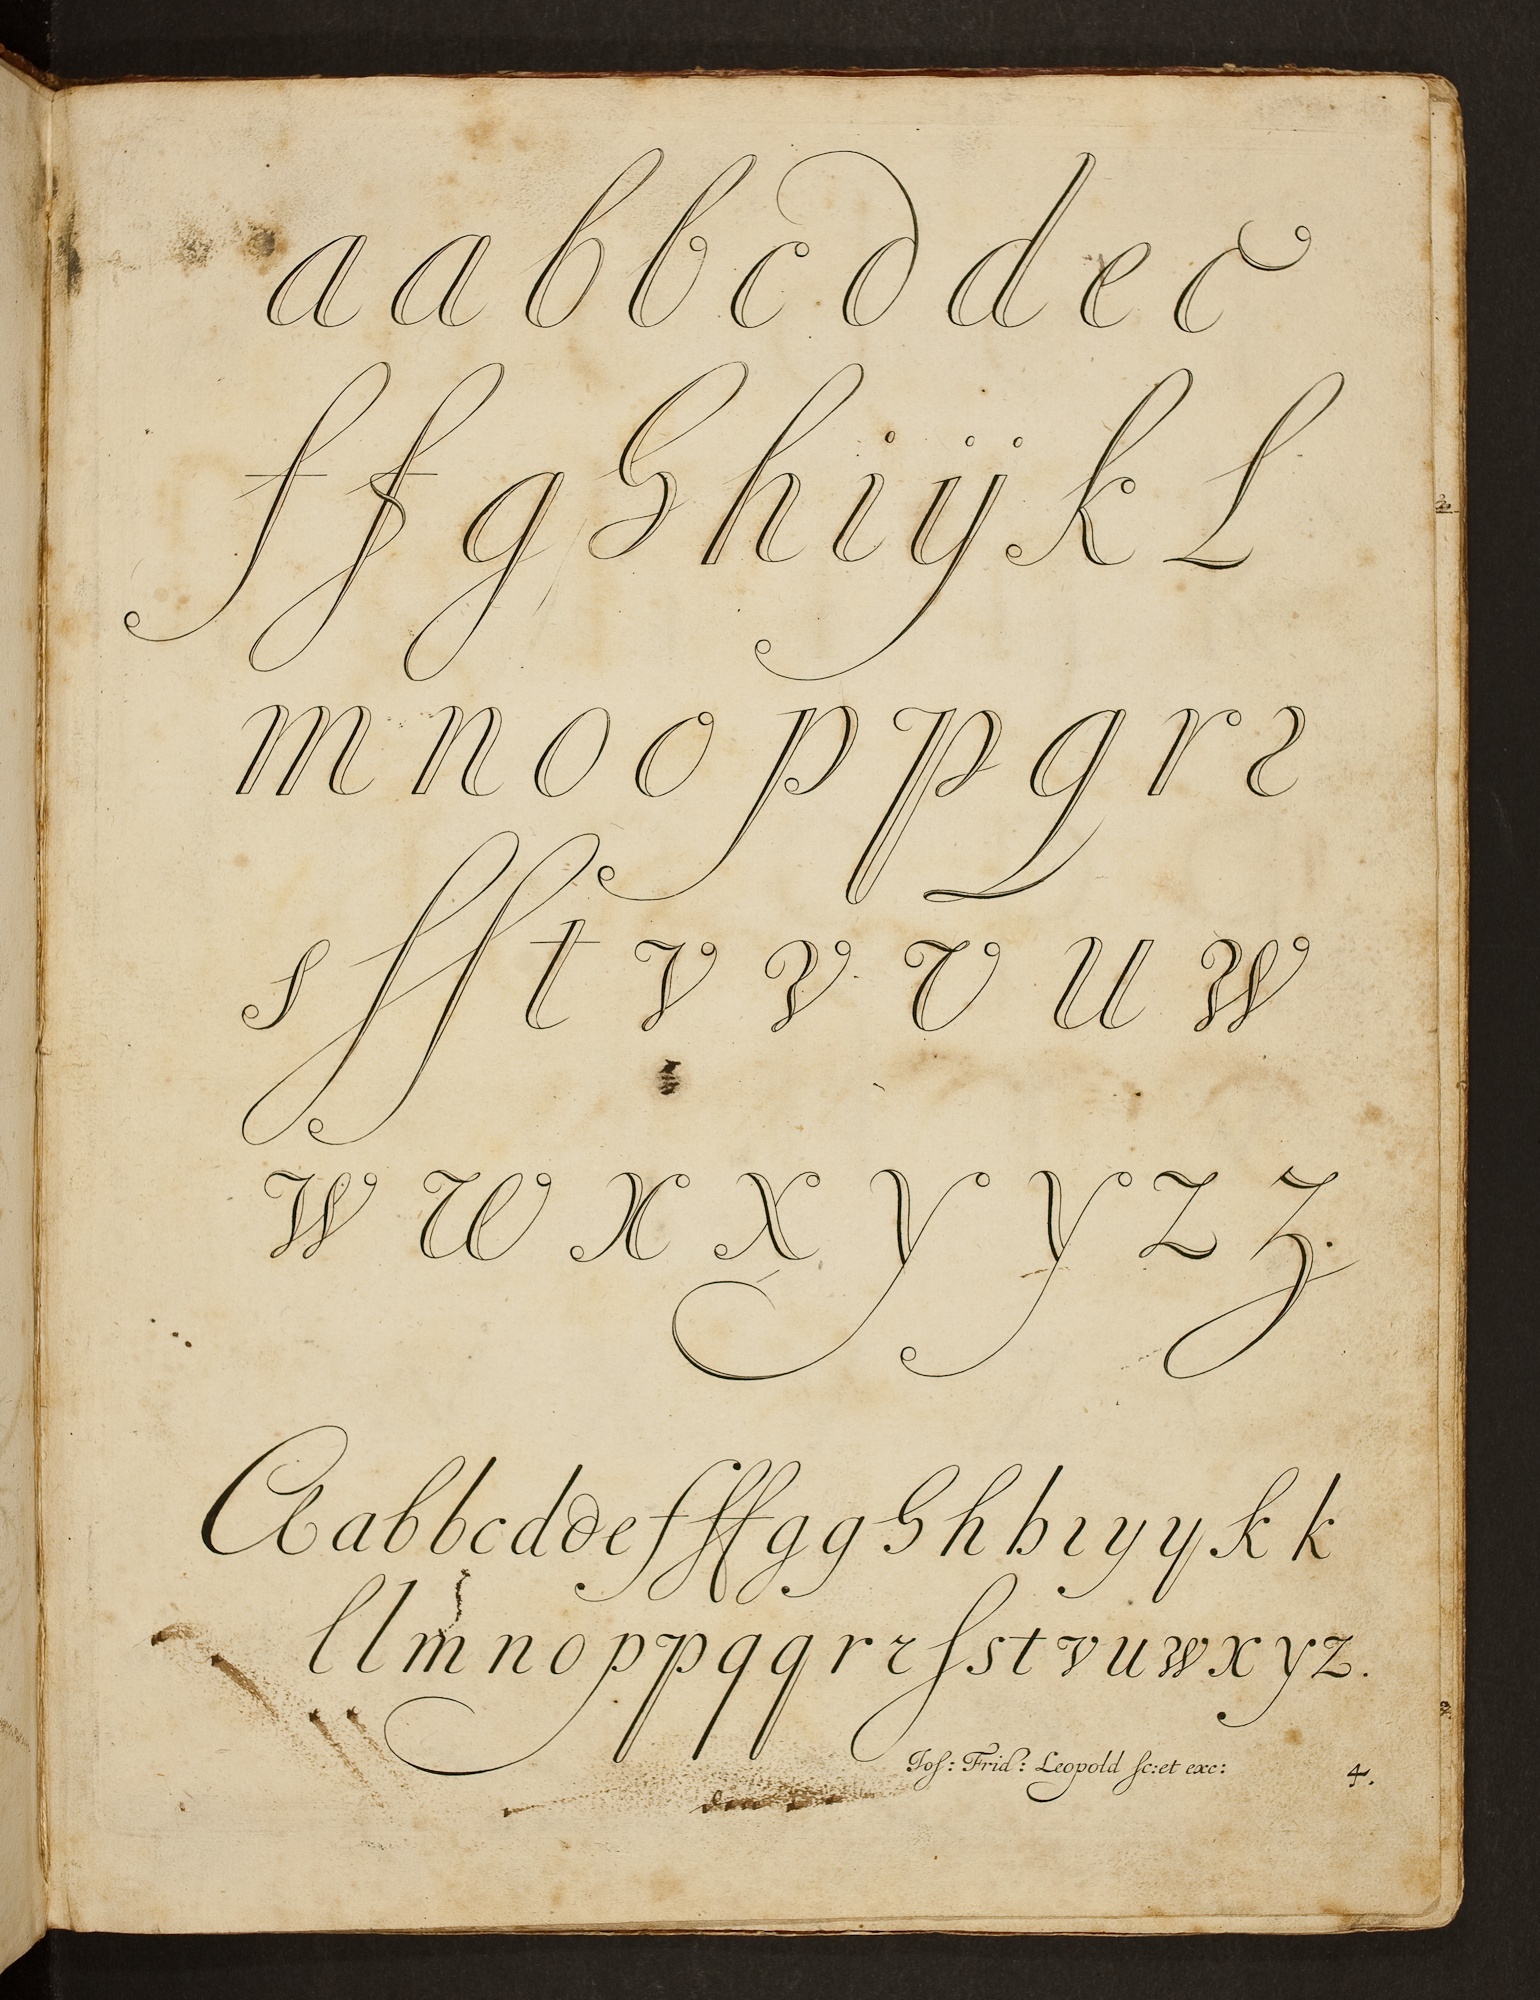 a a b b c d d e e
f f g g h i ij k l
m n o o p p q r r
s ſſ t v v v u w
w w x x y y z z.
A a b b c d d e f ff g g g h h i y y k k
l l m n o p p q q r r ſ s t v u w x y z.
Joſ: Frid: Leopold ſc: et exc:
4.